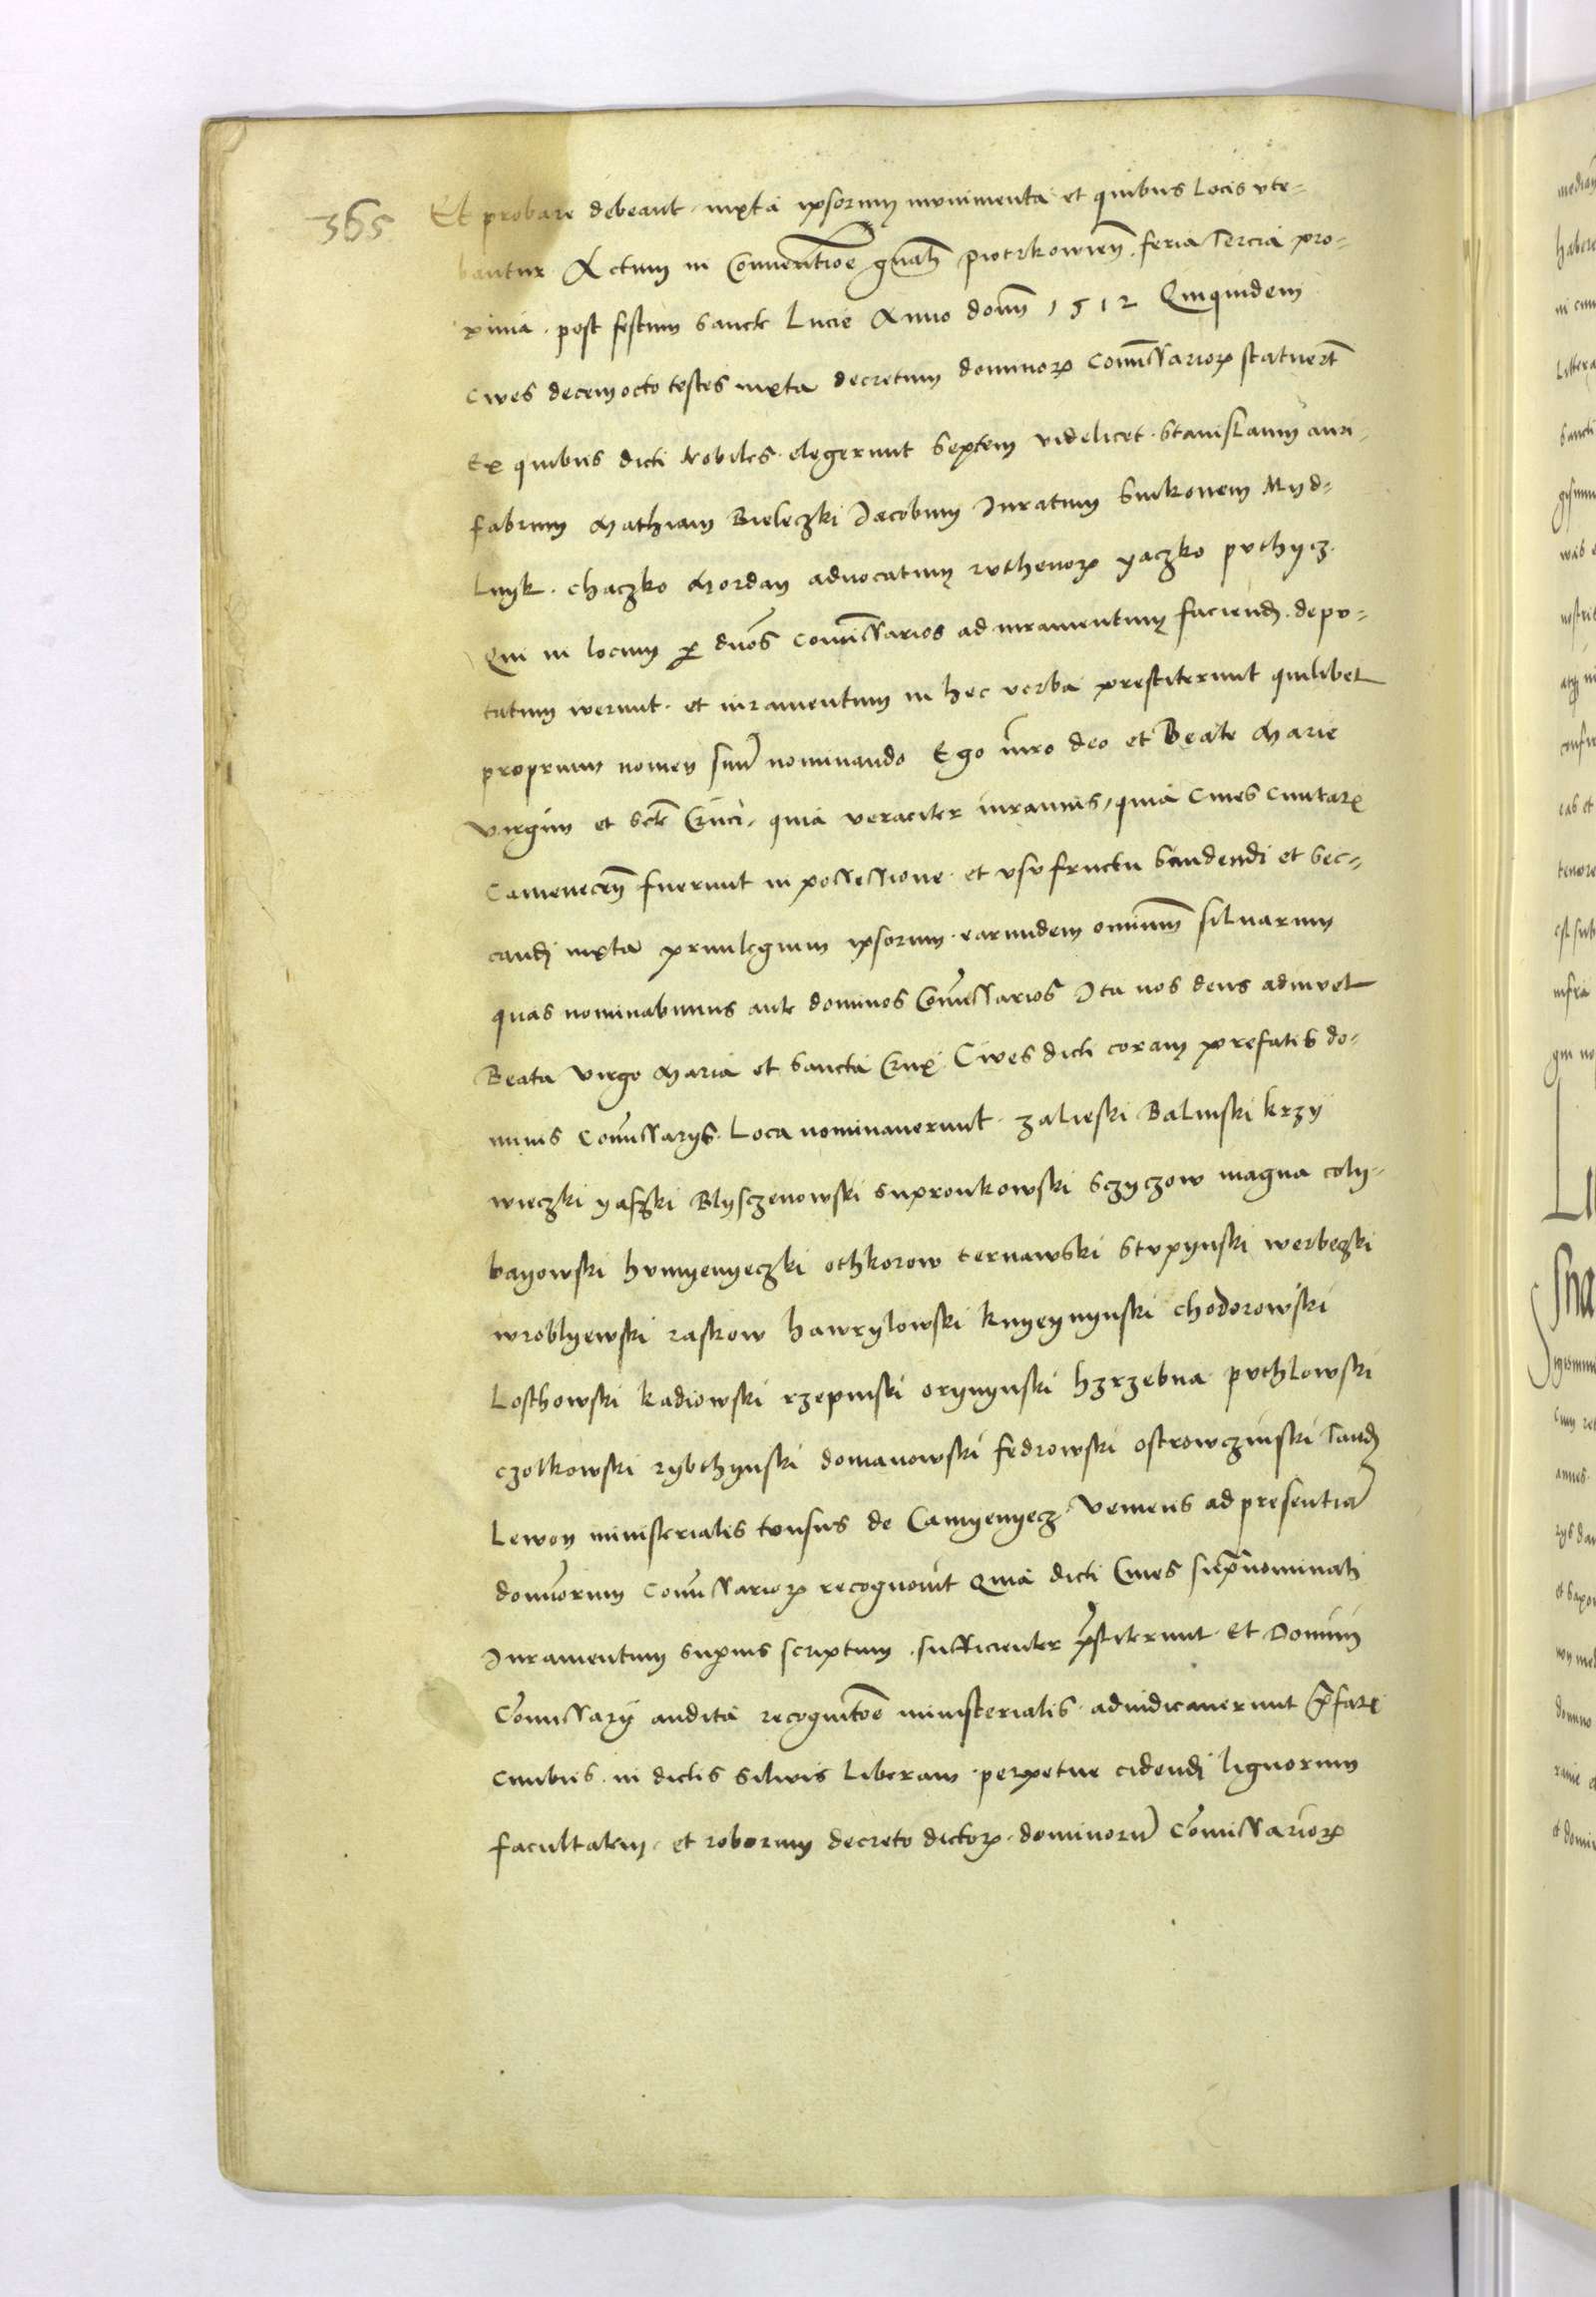 365
Et probare debeant iuxta ipsorum monimenta et quibus locis vte-
bantur Actum in Conventioe gnali piotrkowien feria Tercia pro-
xima post festum Sancte Lucie Anno domi 1512 Quiquidem
Cives decem octo testes iuxta decretum dominor Comissarior statuert
Ex quibus dicti Nobiles elegerunt Septem videlicet Stanislaum auri-
fabrum Mathiam Bieleczki Jacobum Juratum Simkonem Myd-
lnyk chaczko Mordan advocatum ruthenor yaczko puthycz
Qui in locum per dnos Comissarios ad iuramentum faciend depu-
tatum iverunt et iuramentum in hec verba prestiterunt quilibet
proprium nomen suu nominando Ego iuro deo et Beate Marie
virgini et scte Cruci quia veraciter iuramus, quia Cives civitat
Camenecen fuerunt in possessione et vsufructu Candendi et sec-
candi iuxta privilegium ipsorum earundem omnium silvarum
quas nominabimus ante dominos Comissarios Ita nos deus adiuvet
Beata virgo Maria et sancta Crux Cives dicti coram prefatis do-
minis Comissarys Loca nominaverunt zalieski Balinski krzy
wieczki yaszki Blysczenowski supronkowski sczyczow magna coly-
bayowski humyenyeczki othkorow ternawski stupynski werbeczki
wroblyewski raskow hawrylowski knyeynynski chodorowski
Loschowski kadiowski rzepinski orynynski hzrzebna puthlowski
czolkowski rybthynski domanowski fedrowski ostrowczinski Tand
Lewon ministerialis tonsus de Camyenyecz veniens ad presentia
dominorum Comissarior recognovit Quia dicti Cives supranominati
Juramentum superius scriptum sufficienter prestiterunt Et Domini
Comissary audita recognitoe ministerialis adiudicaverunt prefat
civibus in dictis Silvis liberam perpetue cidendi lignorum
facultatem et roborum decreto dictor dominoru Comissarior